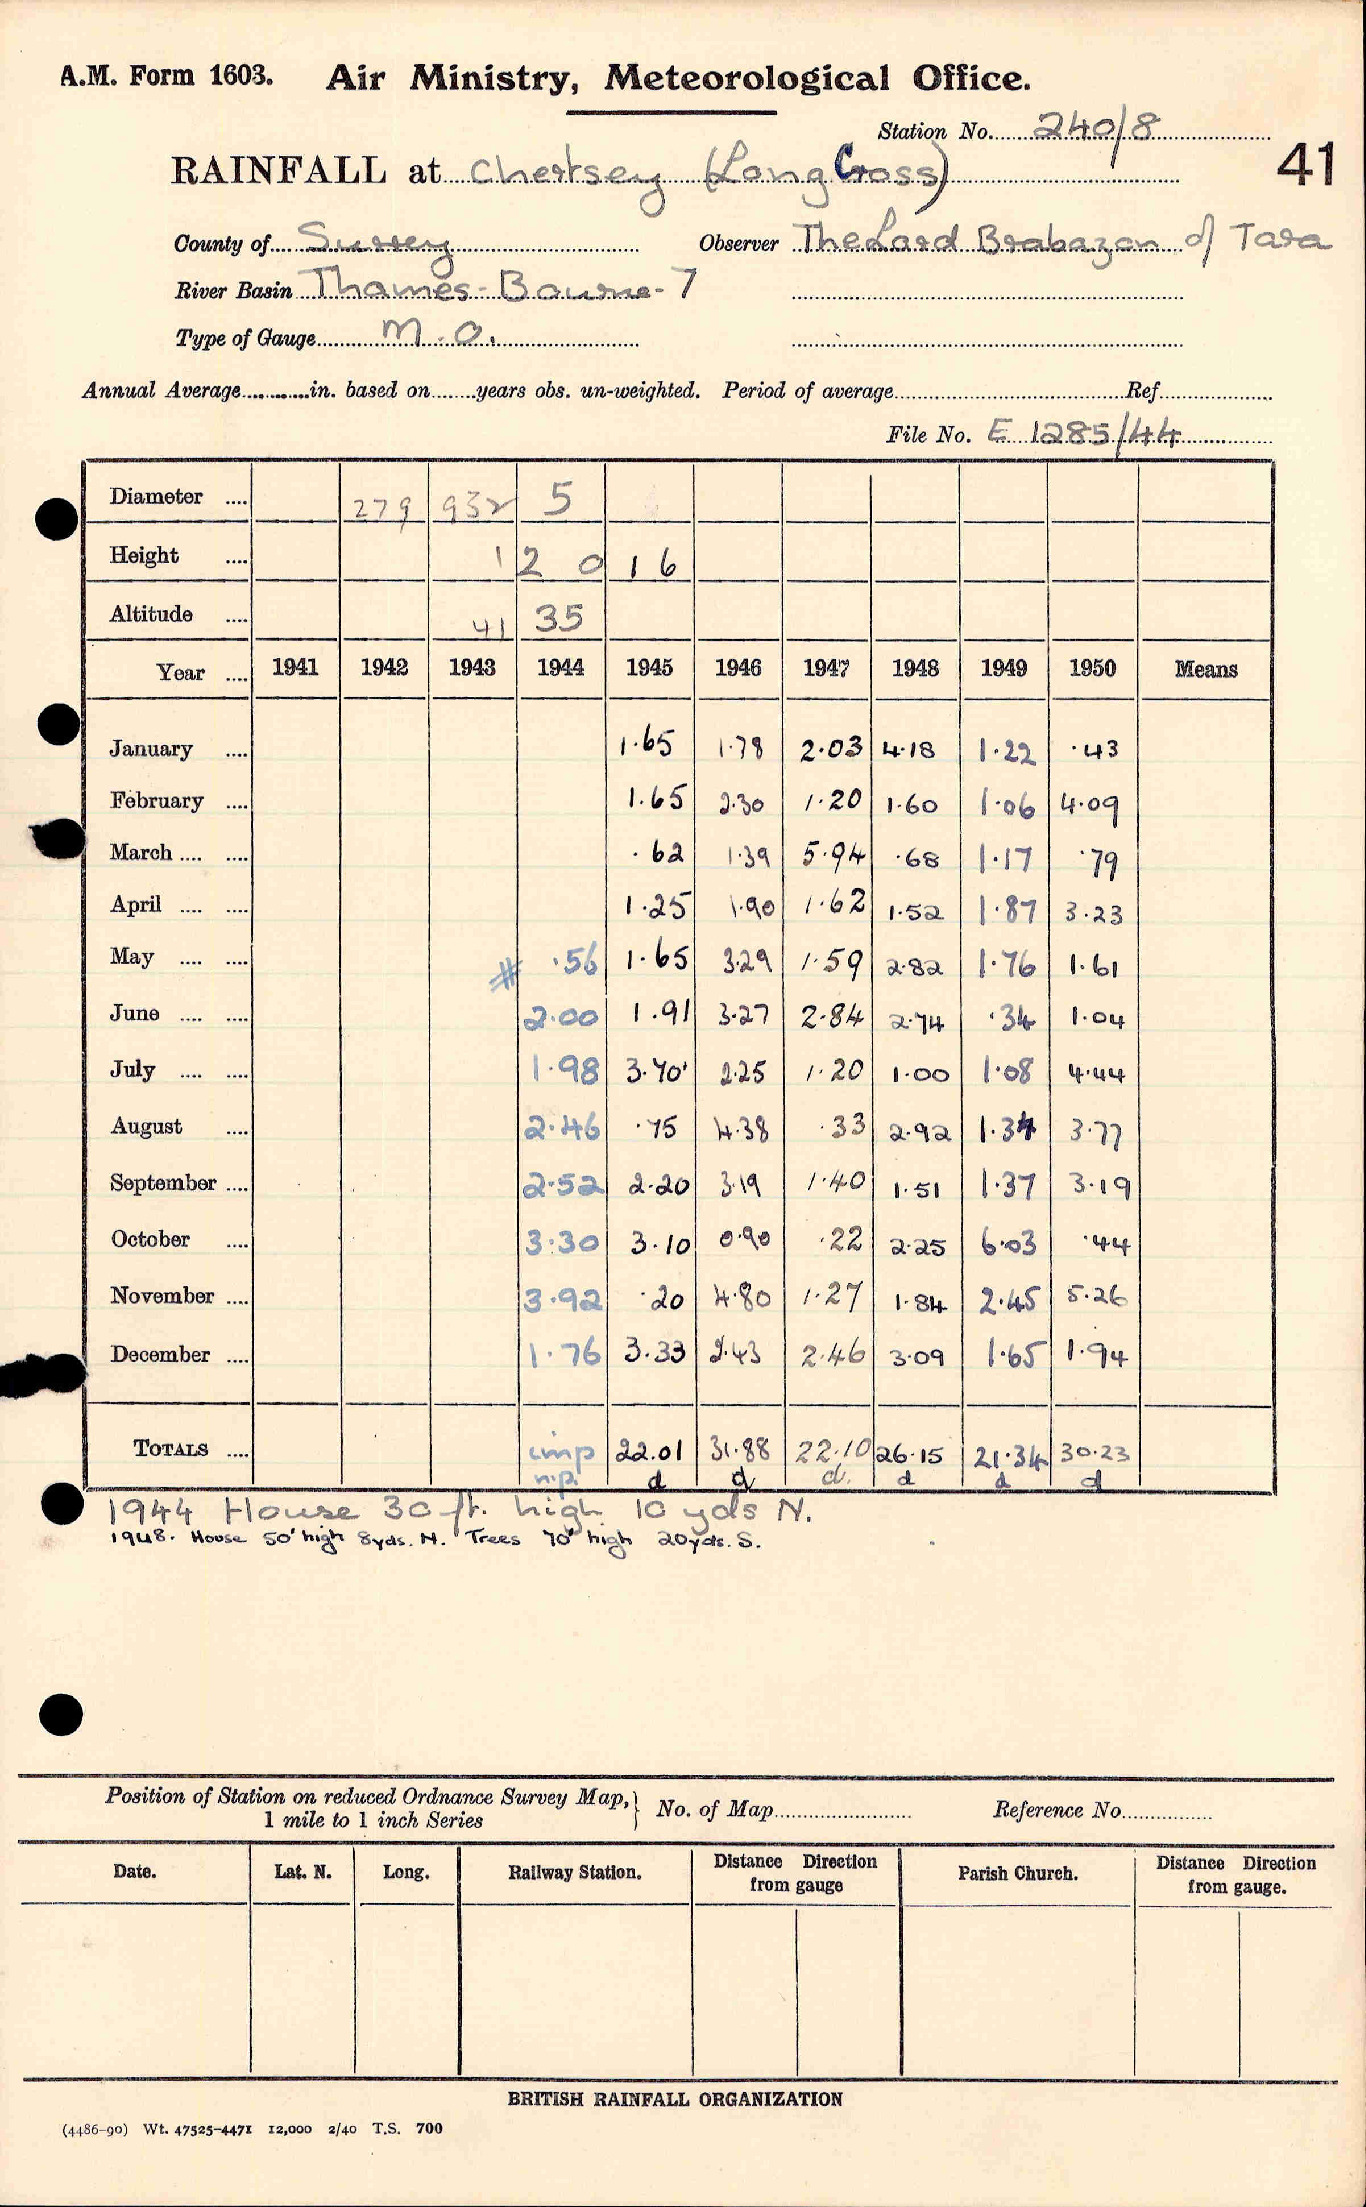 A.M. Form 1603. Air Ministry, Meteorological Office.
Station No. 240/8
RAINFALL at Chertsey (Long Cross) 41
County of Surrey Observer The Lord Brabazon of Tara
River Basin Thames - Bourne - 7
Type of Gauge M.O.
Annual Average in. based on years obs. un-weighted. Period of average Ref.
File No. E 1285/44
Diameter 279 932 5
Height 1 2 0 1 6
Altitude 41 35
Year 1941 1942 1943 1944 1945 1946 1947 1948 1949 1950 Means
January 1.65 1.78 2.03 4.18 1.22 .43
February 1.65 2.30 1.20 1.60 1.06 4.09
March .62 1.39 5.94 .68 1.17 .79
April 1.25 1.90 1.62 1.52 1.87 3.23
May # .56 1.65 3.29 1.59 2.82 1.76 1.61
June 2.00 1.91 3.27 2.84 2.74 .34 1.04
July 1.98 3.70 2.25 1.20 1.00 1.08 4.44
August 2.46 .75 4.38 .33 2.92 1.34 3.77
September 2.52 2.20 3.19 1.40 1.51 1.37 3.19
October 3.30 3.10 0.90 .22 2.25 6.03 .44
November 3.92 .20 4.80 1.27 1.84 2.45 5.26
December 1.76 3.33 2.43 2.46 3.09 1.65 1.94
TOTALS imp 22.01 31.88 22.10 26.15 21.34 30.23
n.p. d d d. d d d
1944 House 30 ft. high 10 yds N.
1948. House 50' high 8yds. N. Trees 70' high 20yds. S.
Position of Station on reduced Ordnance Survey Map, 1 mile to 1 inch Series No. of Map Reference No.
Date. Lat. N. Long. Railway Station. Distance Direction from gauge Parish Church. Distance Direction from gauge.
BRITISH RAINFALL ORGANIZATION
(4486-90) Wt. 47525-4471 12,000 2/40 T.S. 700